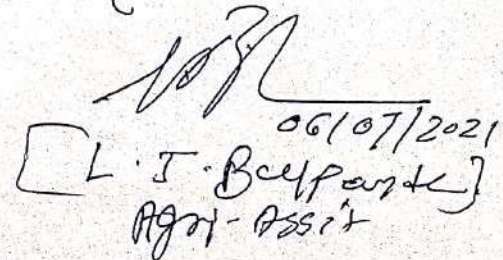 06/07/2021
[L. J. Bellpande]
Agri-Assit